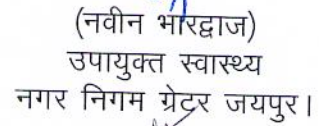 (नवीन भारद्वाज)
उपायुक्त स्वास्थ्य
नगर निगम ग्रेटर जयपुर।